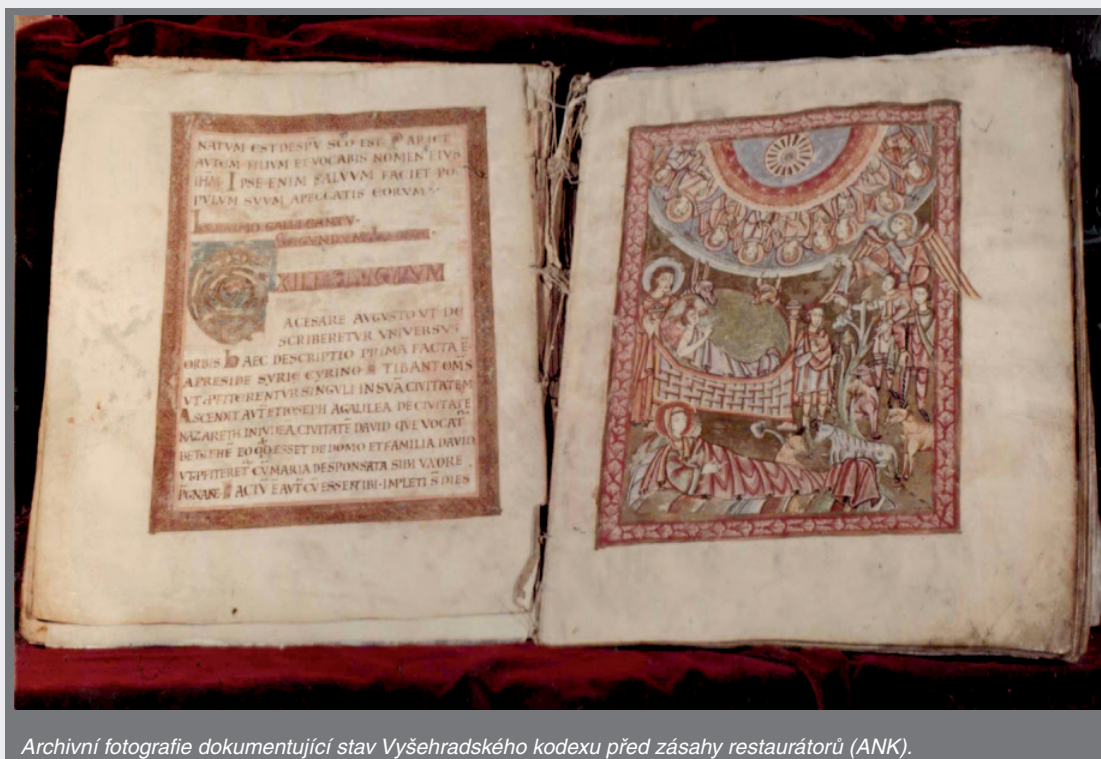 NATVM EST DESPV̅ SC̅O EST PARIET
AVTEM FILIVM ET VOCABIS NOMEN EIVS
IPSE ENIM SALVVM FACIET PO
PVLVM SVVM A PECCATIS EORVM
GALLI CANTV
SECVNDVM
A CESARE AVGVSTO VT DE
SCRIBERETVR VNIVERSVS
ORBIS hAEC DESCRIPTIO PRIMA FACTA E̅
A PRESIDE SYRIE CYRINO ET IBANT OM̅S
VT PFITERENTVR SINGVLI IN SVA̅ CIVITATEM
ASCENDIT AVT̅ ET IOSEPH A GALILEA DE CIVITATE
NAZARETH IN IVDEA CIVITATE̅ DAVID QVE VOCAT̅
BETLEHE̅ EO QD̅ ESSET DE DOMO ET FAMILIA DAVID
VT PFITERET̅ CV̅ MARIA DESPONSATA SIBI VXORE
PGNANE FACTV̅ E̅ AVT̅ CV̅ ESSENT IBI IMPLETI S̅ DIES
Archivní fotografie dokumentující stav Vyšehradského kodexu před zásahy restaurátorů (ANK).